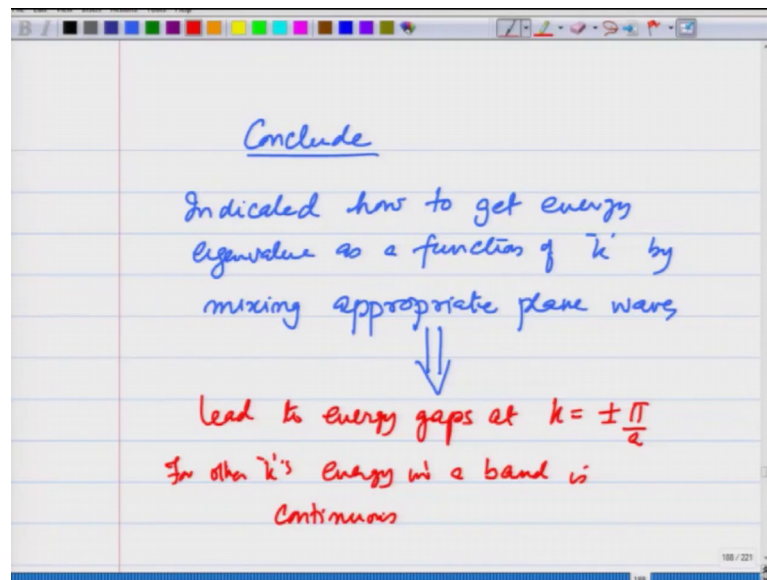 Conclude
Indicated how to get energy
eigenvalue as a function of 'k' by
mixing appropriate plane waves
lead to energy gaps at k = ± π/a
For other k's energy in a band is
continuous
188 / 221